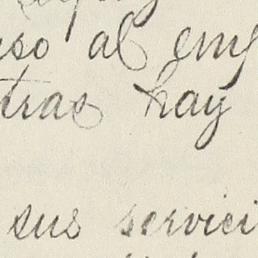 uso al emp
tras hay
sus servici